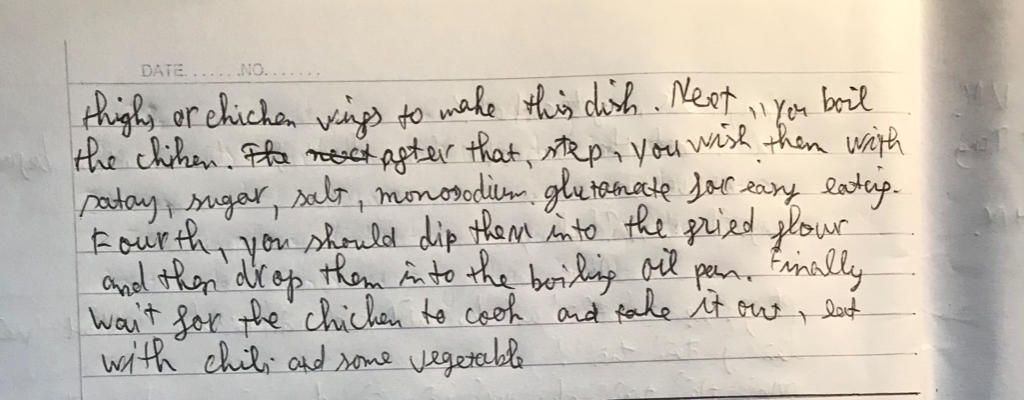 DATE.......NO.......
thighs or chicken wings to make this dish. Next, you boil
the chiken. The next after that, step, you wish them with
satay, sugar, salt, monosodium glutamate for easy eating.
Fourth, you should dip them into the fried flour
and then drop them into the boiling oil pan. Finally
wait for the chicken to cook and take it out, eat
with chili and some vegetable